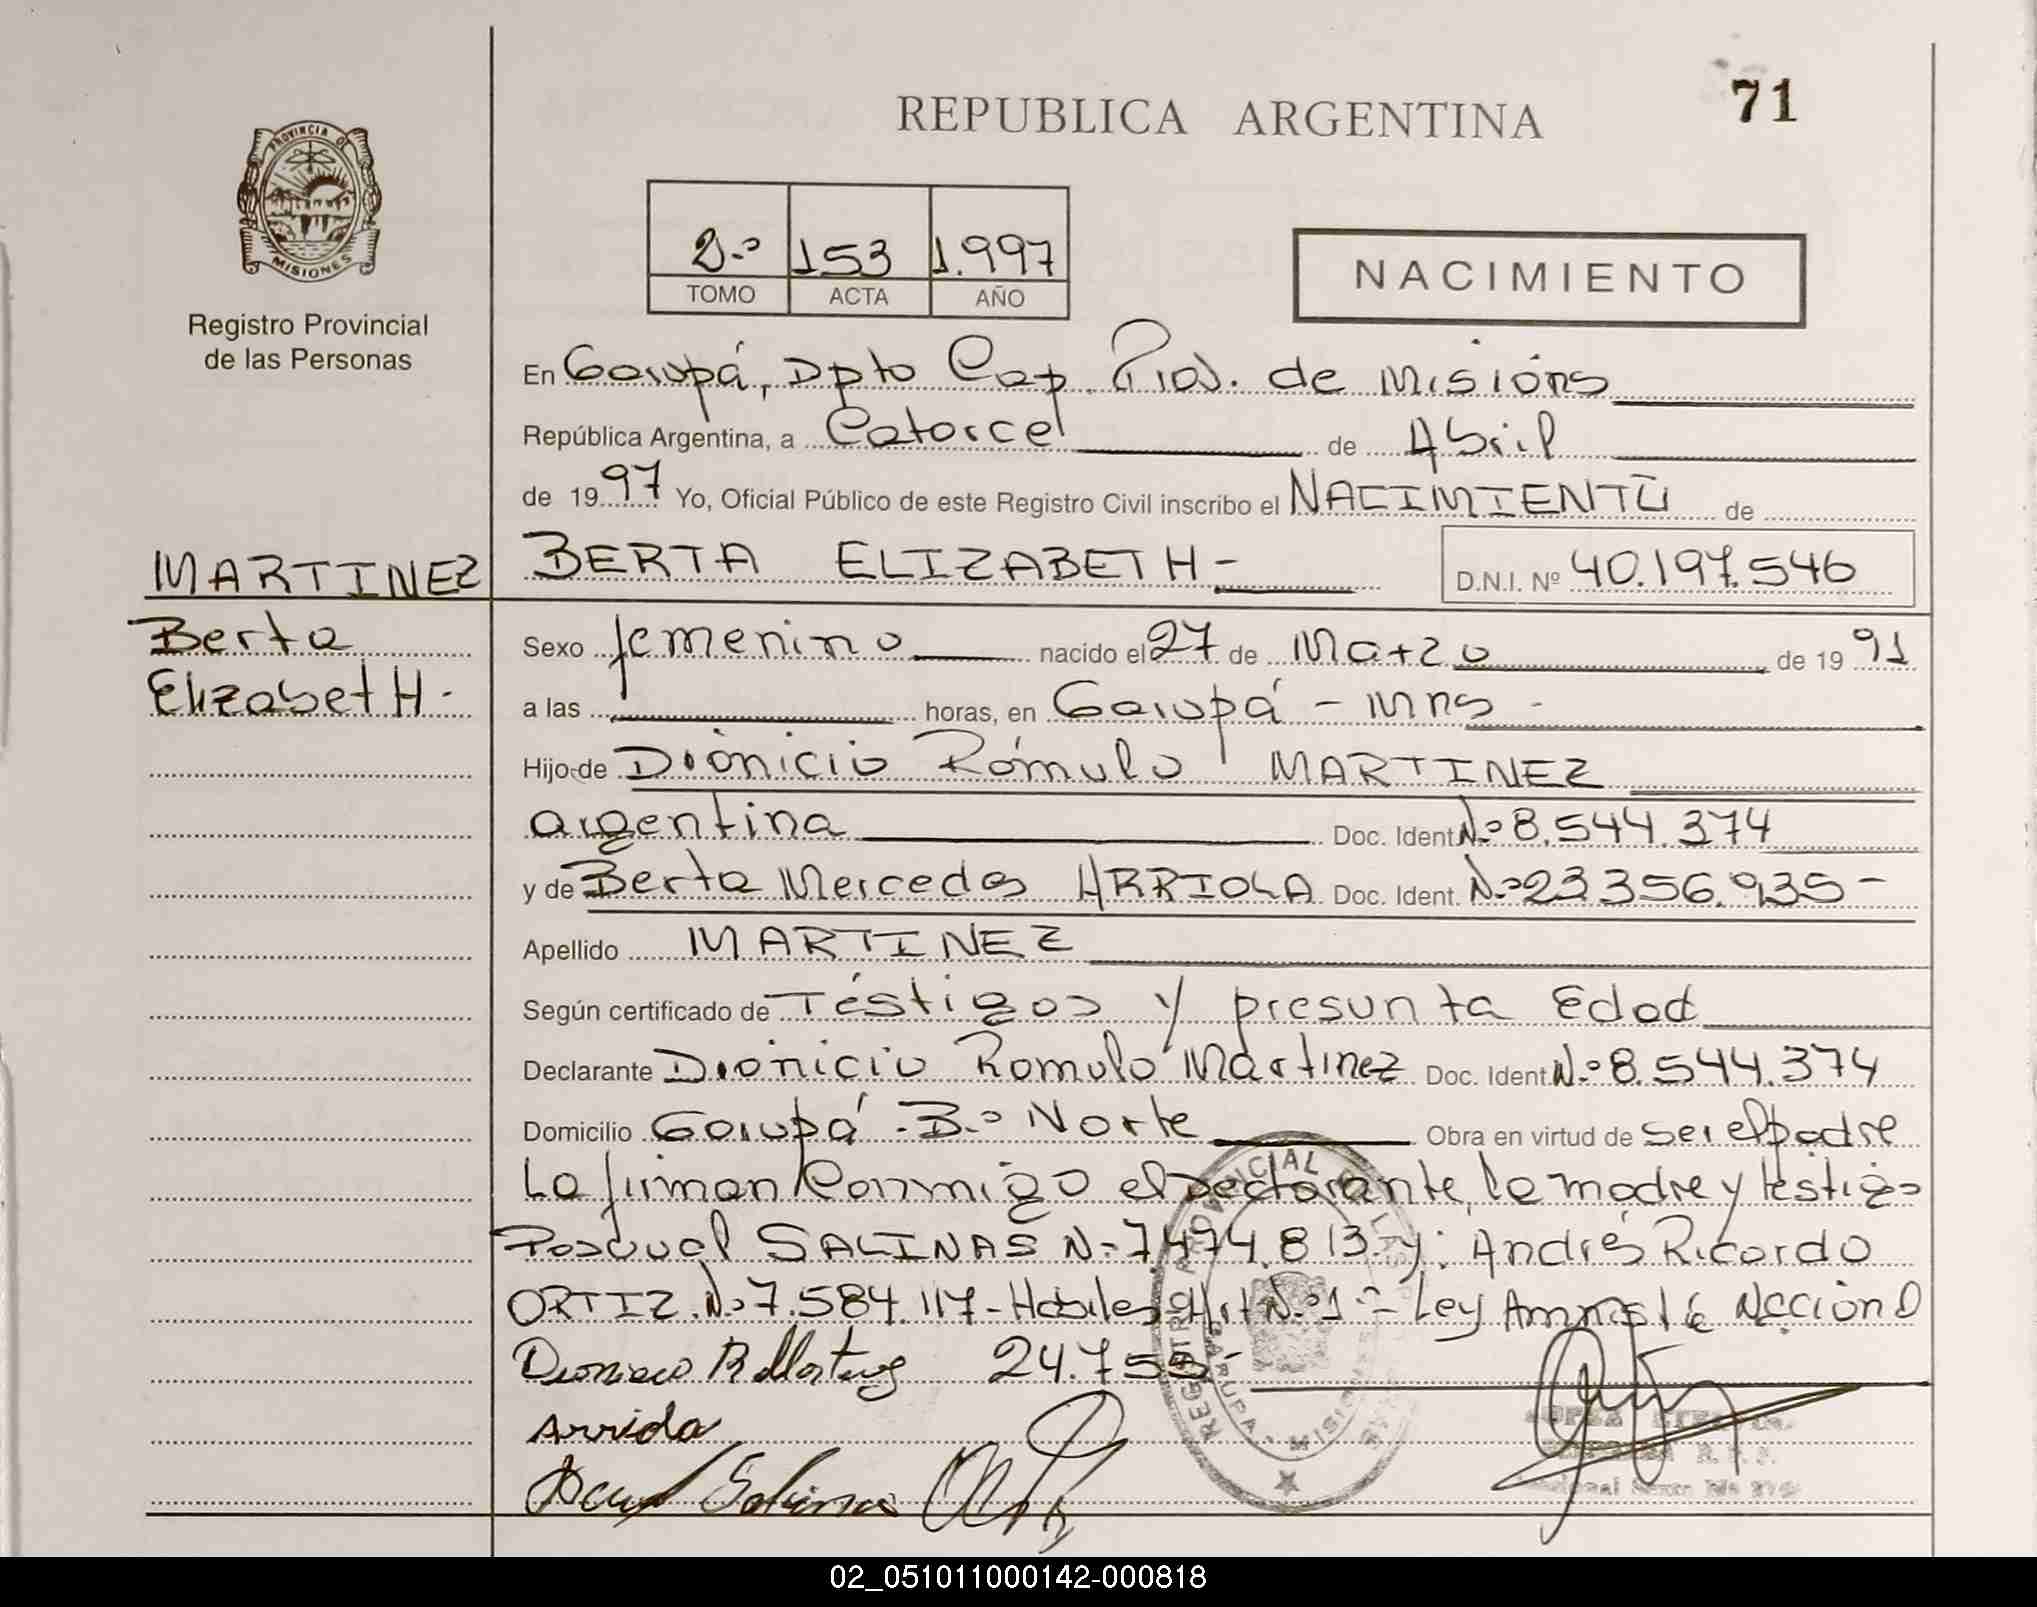 REPUBLICA ARGENTINA
71
PROVINCIA DE
MISIONES
Registro Provincial
de las Personas
2.º 153 1.997
TOMO ACTA AÑO
NACIMIENTO
En Garupá, Dpto Cap. Prov. de Misiónes
República Argentina, a Catorce de Abril
de 1997 Yo, Oficial Público de este Registro Civil inscribo el NACIMIENTO de
MARTINEZ
Berta
Elizabeth -
BERTA ELIZABETH - D.N.I. Nº 40.197.546
Sexo femenino nacido el 27 de Marzo de 1991
a las horas, en Garupá - Mns -
Hijo de Dionicio Rómulo MARTINEZ
argentina Doc. Ident. N.º 8.544.374
y de Berta Mercedes ARRIOLA Doc. Ident. N.º 23.356.935 -
Apellido MARTINEZ
Según certificado de Testigos y presunta Edad
Declarante Dionicio Romulo Martinez Doc. Ident. N.º 8.544.374
Domicilio Garupá - B.º Norte Obra en virtud de ser el padre
La firman Conmigo el Declarante, la madre y testigo
Pascual SALINAS N.º 7.474.813 - y: Andrés Ricardo
ORTIZ. N.º 7.584.117 - Habiles Art N.º 1º - Ley Amnistia Nacional
Dionicio R Martinez 24.755 -
Arriola
Salinas
REGISTRO PROVINCIAL DE LAS
GARUPA - MISIONES
02_051011000142-000818